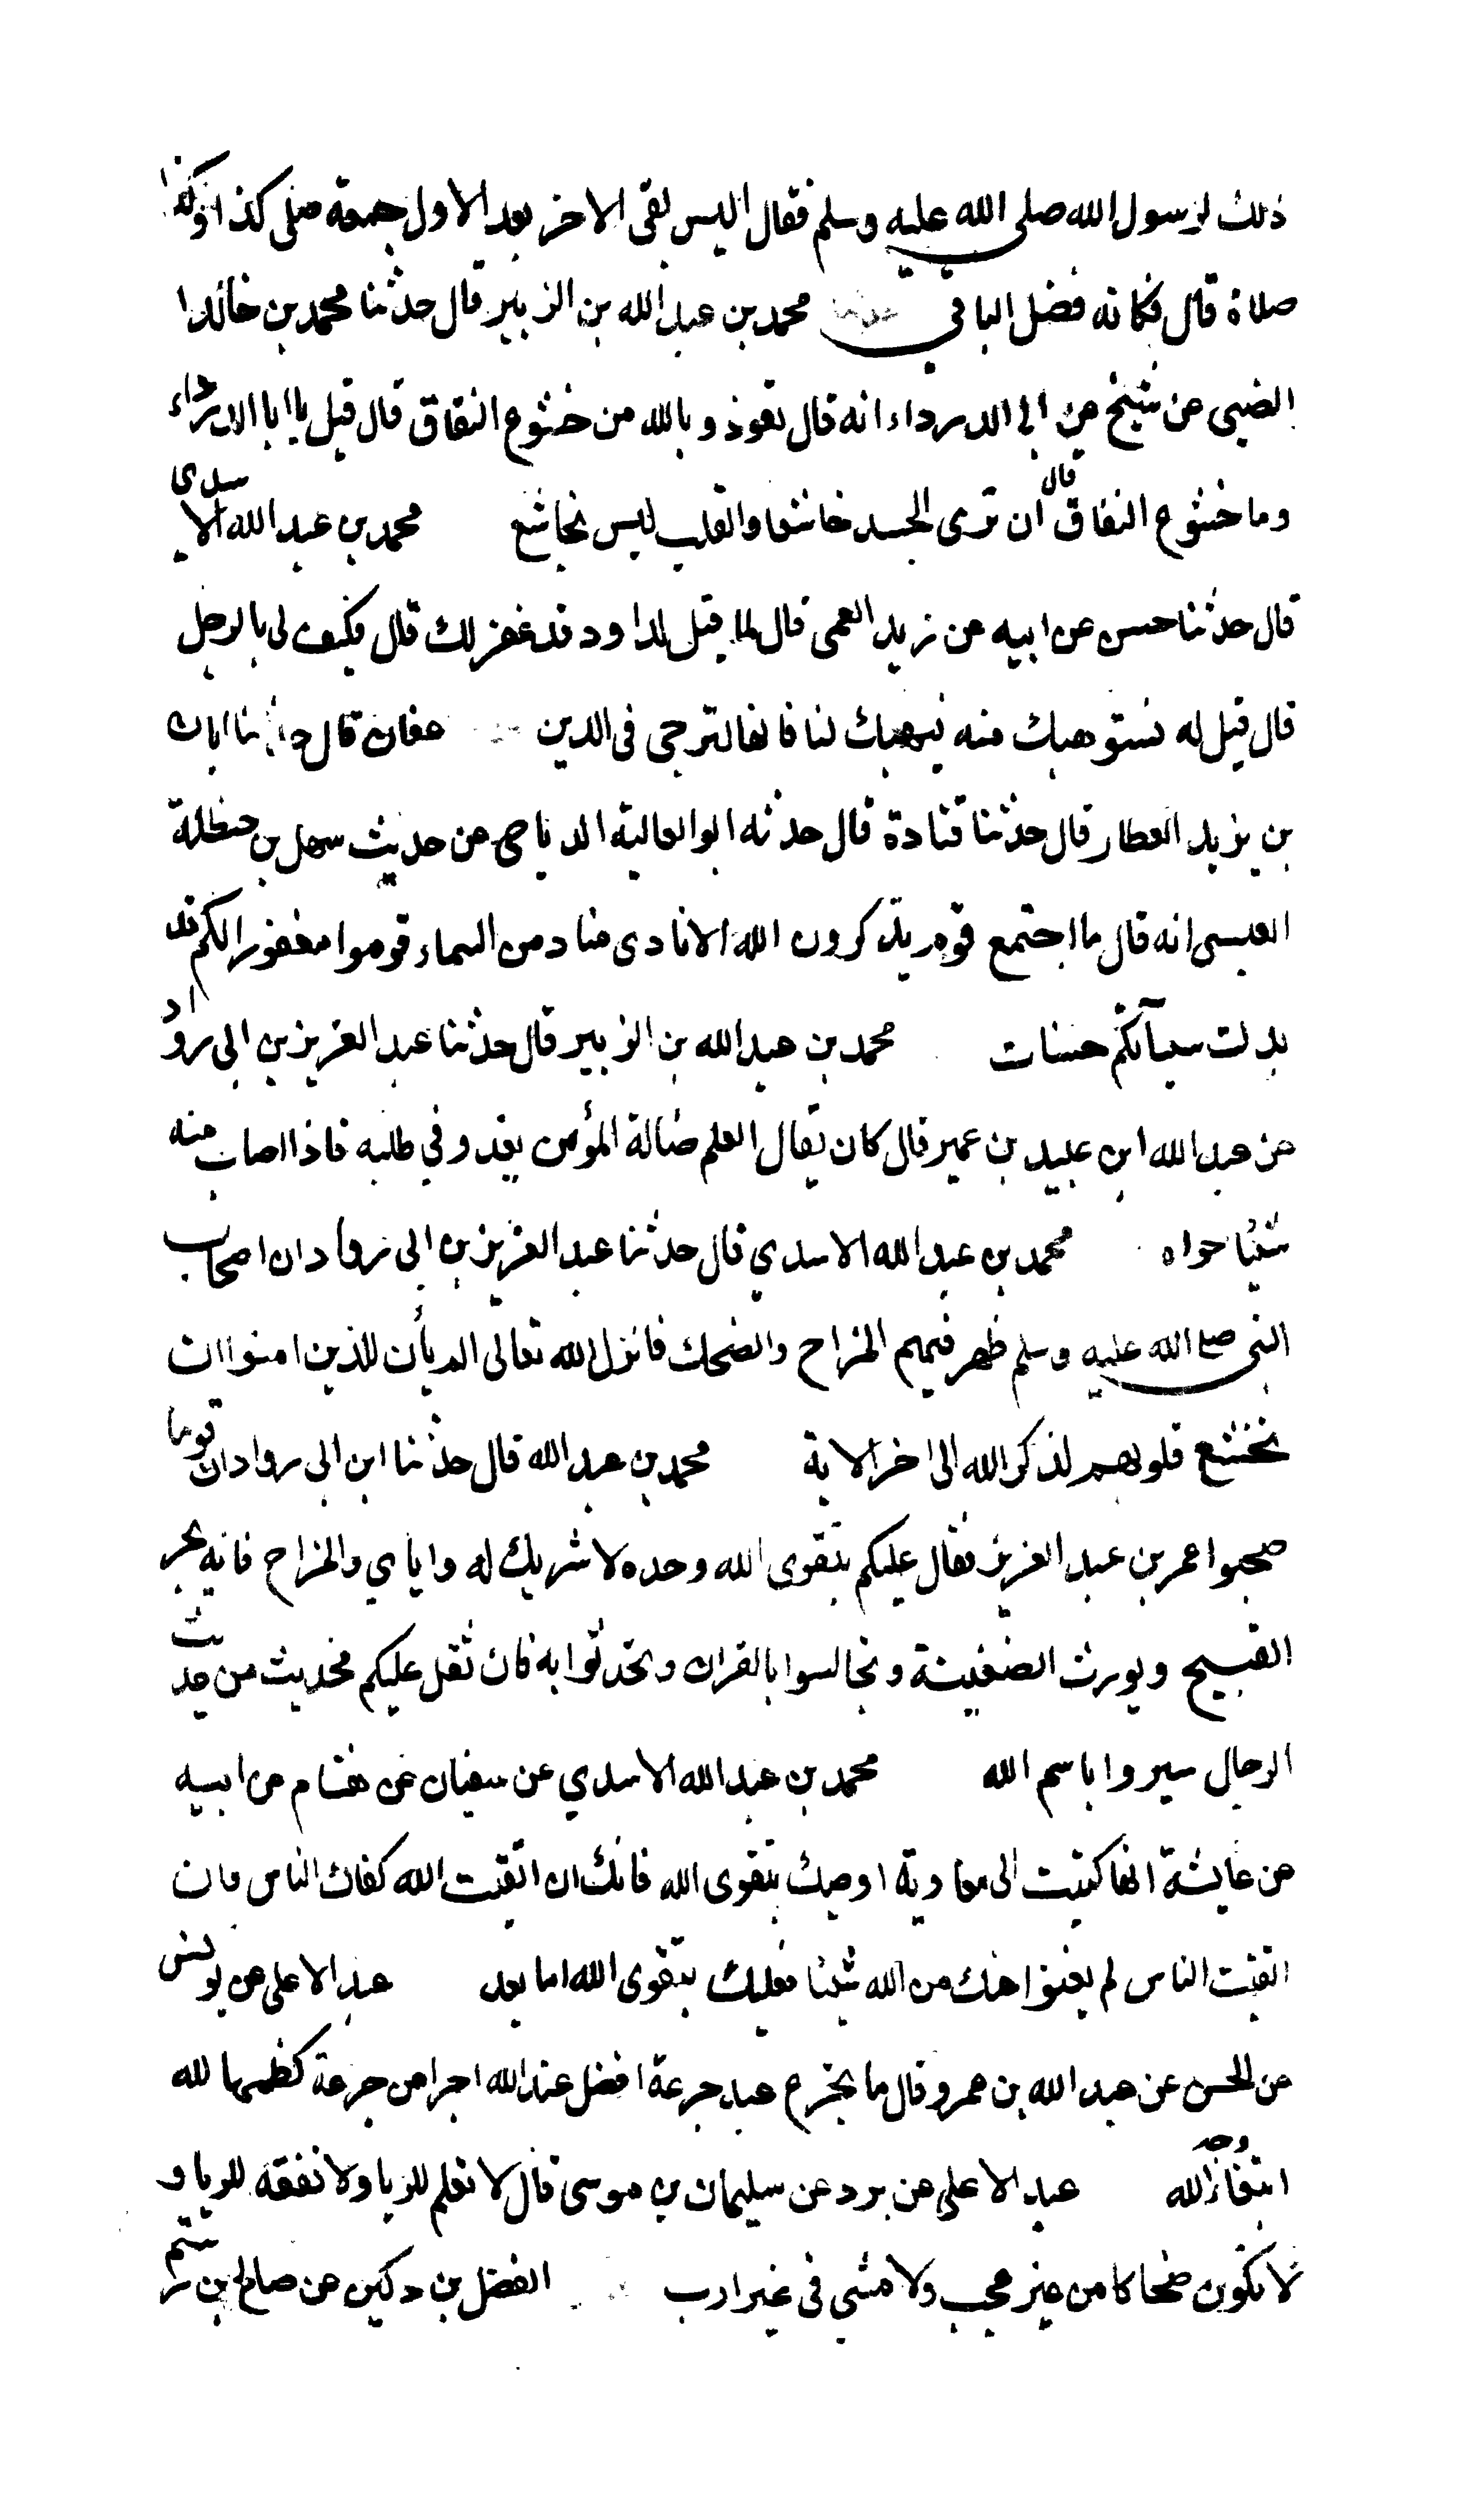 ذلك لرسول الله صلى الله عليه وسلم فقال اليس بقى الاخر بعد الاول جمعة صلى كذا وكذا
صلاة قال فكانه فضل الباقي محمد بن عبد الله بن الزبير قال حدثنا محمد بن خالد ا
الضبي عن شيخ عن ابي الدرداء انه قال تعوذوا بالله من خشوع النفاق قال قيل يا ابا الدرداء
وما خشوع النفاق قال ان ترى الجسد خاشعا والقلب ليس بخاشع محمد بن عبد الله الاسدي
قال حدثنا حسن عن ابيه عن زيد العمى قال لما قيل لداود قد غفر لك قال فكيف لي بالرجل
قال قيل له نستوهبك منه فيهبك لنا فانها لترجى فى الدين عفان قال حدثنا ابان
بن يزيد العطار قال حدثنا قتادة قال حدثه ابو العالية الرياحي عن حديث سهل بن حنظلة
العبسى انه قال ما اجتمع قوم يذكرون الله الا نادى مناد من السماء قوموا مغفورا لكم قد
بدلت سيآتكم حسنات محمد بن عبد الله بن الزبير قال حدثنا عبد العزيز بن ابى رواد
عن عبد الله ابن عبيد بن عمير قال كان يقال العلم ضالة المؤمن يغدو في طلبه فاذا اصاب منه
شيئا حواه محمد بن عبد الله الاسدي قال حدثنا عبد العزيز بن ابى رواد ان اصحاب
النبى صلى الله عليه وسلم ظهر فيهم المزاح والضحك فانزل الله تعالى الم يأن للذين امنوا ان
تخشع قلوبهم لذكر الله الى اخر الاية محمد بن عبد الله قال حدثنا ابن ابى رواد ان قوما
صحبوا عمر بن عبد العزيز فقال عليكم بتقوى الله وحده لا شريك له واياي والمزاح فانه يجر
القبيح ويورث الضغينة وتجالسوا بالقران وتحدثوا به فان ثقل عليكم فحديث من حديث
الرجال سيروا باسم الله محمد بن عبد الله الاسدي عن سفيان عن هشام عن ابيه
عن عايشة انها كتبت الى معاوية اوصيك بتقوى الله فانك ان اتقيت الله كفاك الناس فان
اتقيت الناس لم يغنوا عنك من الله شيئا فعليك بتقوى الله اما بعد عبد الاعلى عن يونس
عن الحسن عن عبد الله بن عمرو قال ما تجرع عبد جرعة افضل عند الله اجرا من جرعة كظمها لله
ابتغاء وجه الله عبد الاعلى عن برد عن سليمان بن موسى قال لا تعلم للريا ولا تفقه للريا و
لا تكون ضحاكا من غير عجب ولا مشى فى غير ارب الفضل بن دكين عن صالح بن رستم